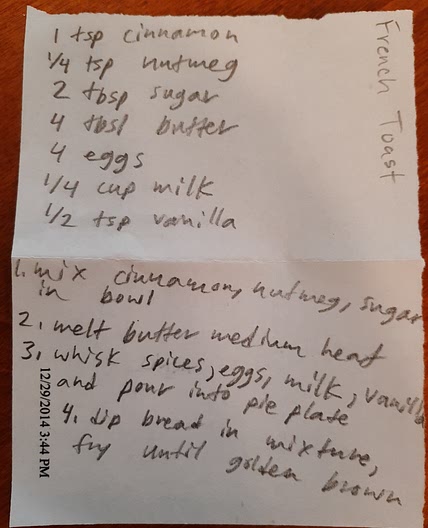 French Toast
1 tsp cinnamon
1/4 tsp nutmeg
2 tbsp sugar
4 tbsl butter
4 eggs
1/4 cup milk
1/2 tsp vanilla
1. mix cinnamon, nutmeg, sugar
in bowl
2. melt butter medium heat
3. whisk spices, eggs, milk, vanilla
and pour into pie plate
4. dip bread in mixture,
fry until golden brown
12/29/2014 3:44 PM